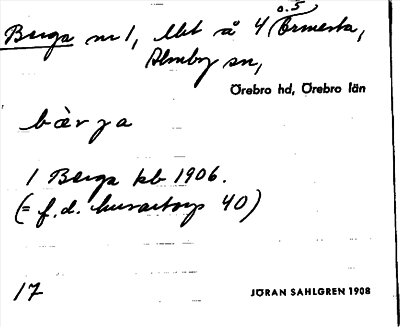 o. 5
Berga nr 1, likt å 4 Ormesta,
Almby sn,
Örebro hd, Örebro län
bæ̀rya
1 Berga kb 1906.
(= f.d. 40)
17
JÖRAN SAHLGREN 1908